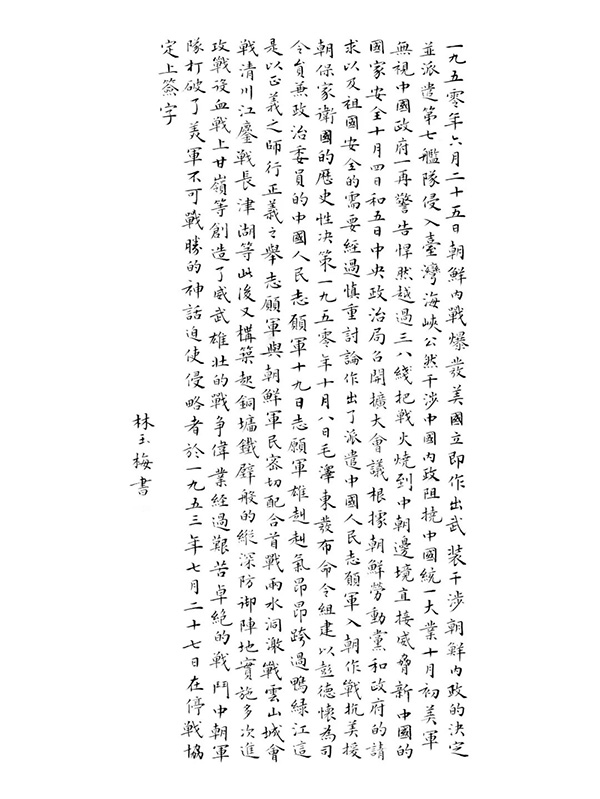 一九五零年六月二十五日朝鮮內戰爆發美國立即作出武裝干涉朝鮮內政的決定
並派遣第七艦隊侵入臺灣海峽公然干涉中國內政阻撓中國統一大業十月初美軍
無視中國政府一再警告悍然越過三八綫把戰火燒到中朝邊境直接威脅新中國的
國家安全十月四日和五日中央政治局召開擴大會議根據朝鮮勞動黨和政府的請
求以及祖國安全的需要經過慎重討論作出了派遣中國人民志願軍入朝作戰抗美援
朝保家衛國的歷史性決策一九五零年十月八日毛澤東發布命令組建以彭德懷為司
令員兼政治委員的中國人民志願軍十九日志願軍雄赳赳氣昂昂跨過鴨綠江這
是以正義之師行正義之舉志願軍與朝鮮軍民密切配合首戰兩水洞激戰雲山城會
戰清川江鏖戰長津湖等此後又構築起銅墻鐵壁般的縱深防御陣地實施多次進
攻戰役血戰上甘嶺等創造了威武雄壯的戰爭偉業經過艱苦卓絕的戰鬥中朝軍
隊打破了美軍不可戰勝的神話迫使侵略者於一九五三年七月二十七日在停戰協
定上簽字
林玉梅書